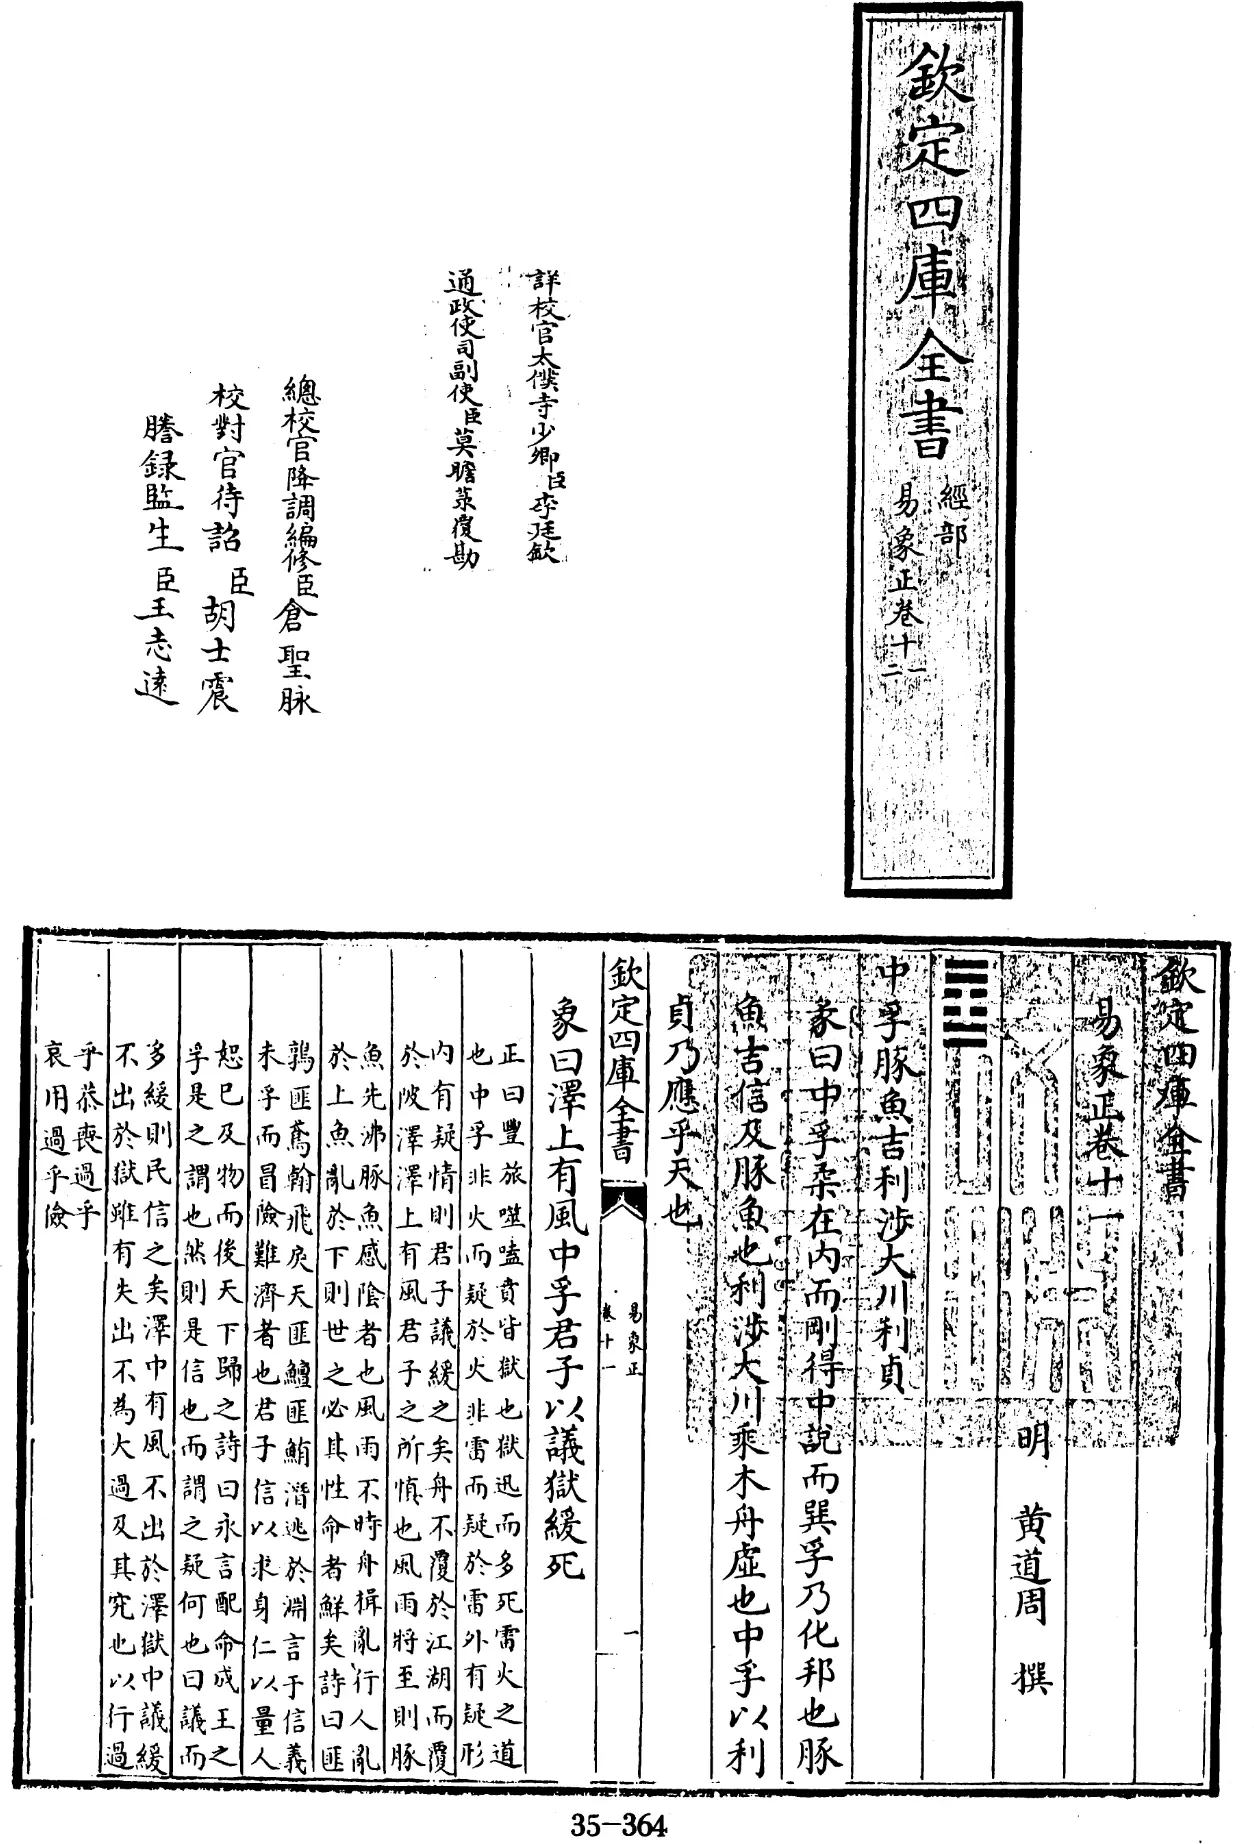 欽定四庫全書
經部
易象正卷十一
二
詳校官太僕寺少卿臣李廷欽
通政使司副使臣莫瞻菉覆勘
總校官降調編修臣倉聖脉
校對官待詔臣胡士震
謄錄監生臣王志遠
欽定四庫全書
易象正卷十一
明 黄道周 撰
䷼
中孚豚魚吉利涉大川利貞
彖曰中孚柔在内而剛得中說而巽孚乃化邦也豚
魚吉信及豚魚也利涉大川乘木舟虛也中孚以利
貞乃應乎天也
欽定四庫全書
易象正
卷十一
一
象曰澤上有風中孚君子以議獄緩死
正曰豐旅噬嗑賁皆獄也獄迅而多死雷火之道
也中孚非火而疑於火非雷而疑於雷外有疑形
内有疑情則君子議緩之矣舟不覆於江湖而覆
於陂澤澤上有風君子之所慎也風雨將至則豚
魚先沸豚魚感陰者也風雨不時舟楫亂行人亂
於上魚亂於下則世之必其性命者鮮矣詩曰匪
鶉匪鳶翰飛戾天匪鱣匪鮪潛逃於淵言于信義
未孚而冒險難濟者也君子信以求身仁以量人
恕已及物而後天下歸之詩曰永言配命成王之
孚是之謂也然則是信也而謂之疑何也曰議而
多緩則民信之矣澤中有風不出於澤獄中議緩
不出於獄雖有失出不為大過及其究也以行過
乎恭喪過乎
哀用過乎儉
35-364